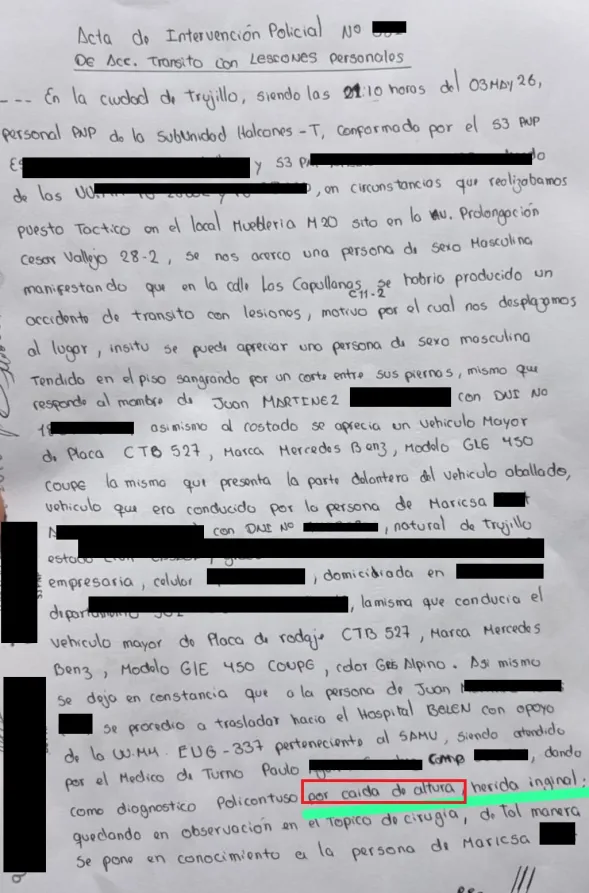 Acta de Intervención Policial No
De Acc. Transito con Lesiones personales
--- En la ciudad de Trujillo, siendo las 21:10 horas del 03MAY26,
personal PNP de la Subunidad Halcones-T, conformado por el S3 PNP
y S3
de los, en circunstancias que realizabamos
puesto Tactico en el local Muebleria M20 sito en la Av. Prolongación
Cesar Vallejo 28-2, se nos acerco una persona de sexo Masculina
manifestando que en la calle Las Capullanas C11-2 se habria producido un
accidente de transito con lesiones, motivo por el cual nos desplazamos
al lugar, insitu se puede apreciar una persona de sexo masculina
Tendido en el piso sangrando por un corte entre sus piernas, mismo que
responde al mombre de Juan MARTINEZ con DNI No
, asimismo al costado se aprecia un vehiculo Mayor
de Placa CTB 527, Marca Mercedes Benz, Modelo GLE 450
COUPE la misma que presenta la parte delantera del vehiculo aballado,
vehiculo que era conducido por la persona de Maricsa
con DNI No , natural de Trujillo
empresaria, celular , domiciliada en
, la misma que conducia el
vehiculo mayor de Placa de rodaje CTB 527, Marca Mercedes
Benz, Modelo GlE 450 COUPE, color Gris Alpino. Asi mismo
se deja en constancia que a la persona de Juan
se procedio a trasladar hacia el Hospital BELEN con apoyo
de la U.MM. EUG-337 perteneciente al SAMU, siendo atendido
por el Medico de Turno Paulo CMP , dando
como diagnostico Policontuso por caida de altura, herida inginal;
quedando en observación en el Topico de cirugía, de Tal manera
Se pone en conocimiento a la persona de Maricsa